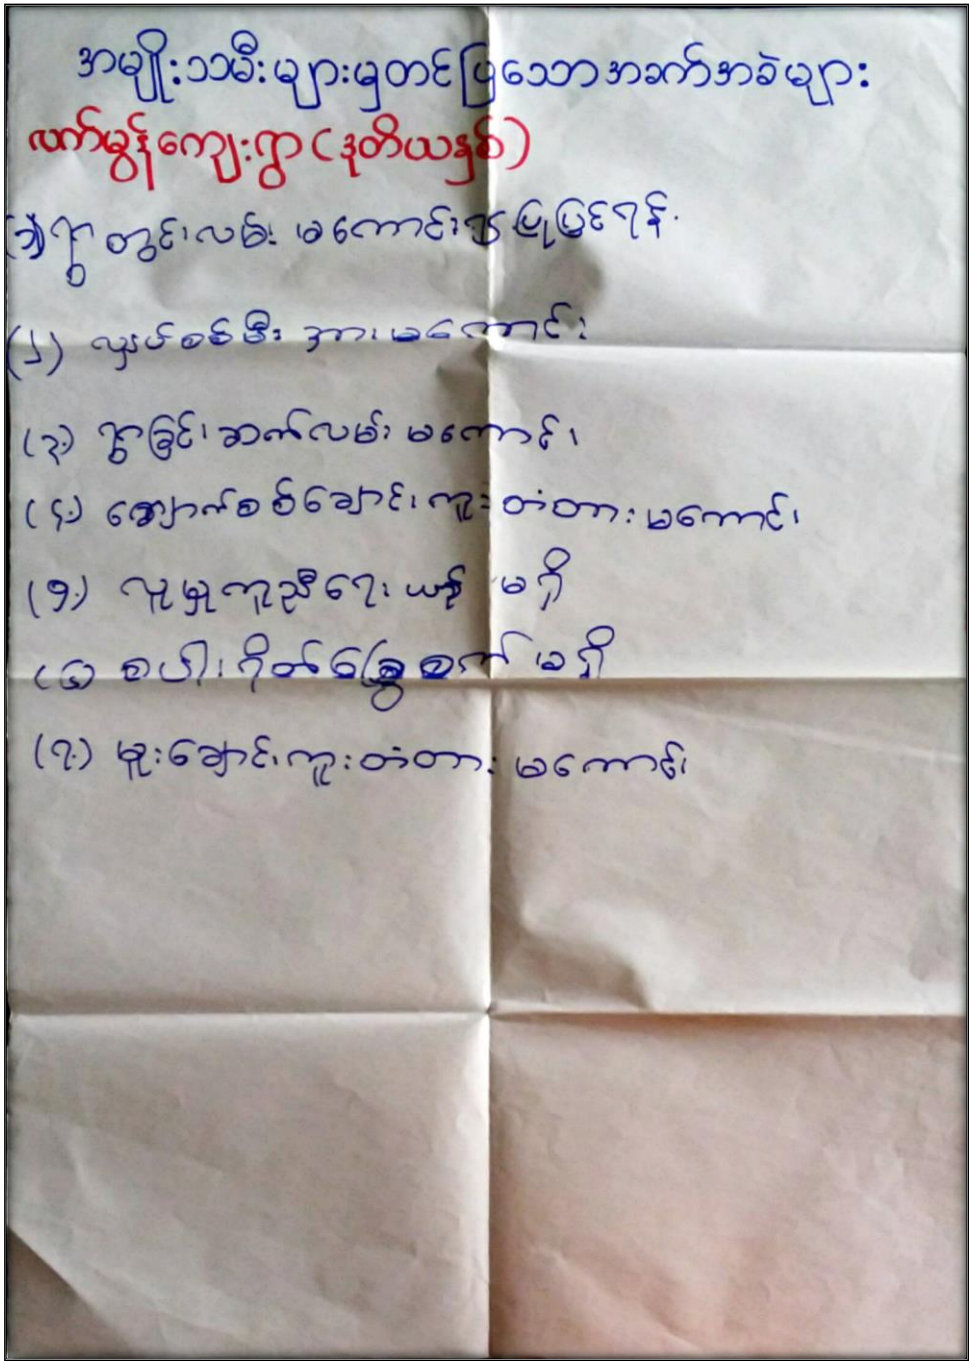 အမျိုးသမီးများမှတင်ပြသောအခက်အခဲများ
လက်မွန်ကျေးရွာ(ဒုတိယနှစ်)
(၁) ရွာတွင်းလမ်း မကောင်း၍ ပြုပြင်ရန်.
(၂) လျှပ်စစ်မီး အားမကောင်း
(၃) ရွာချင်းဆက်လမ်း မကောင်း
(၄) ကျောက်စစ်ချောင်းကူးတံတား မကောင်း
(၅) လူမှုကူညီရေးယာဉ် မရှိ
(၆) စပါးရိတ်ခြွေစက် မရှိ
(၇) မူးချောင်းကူးတံတား မကောင်း